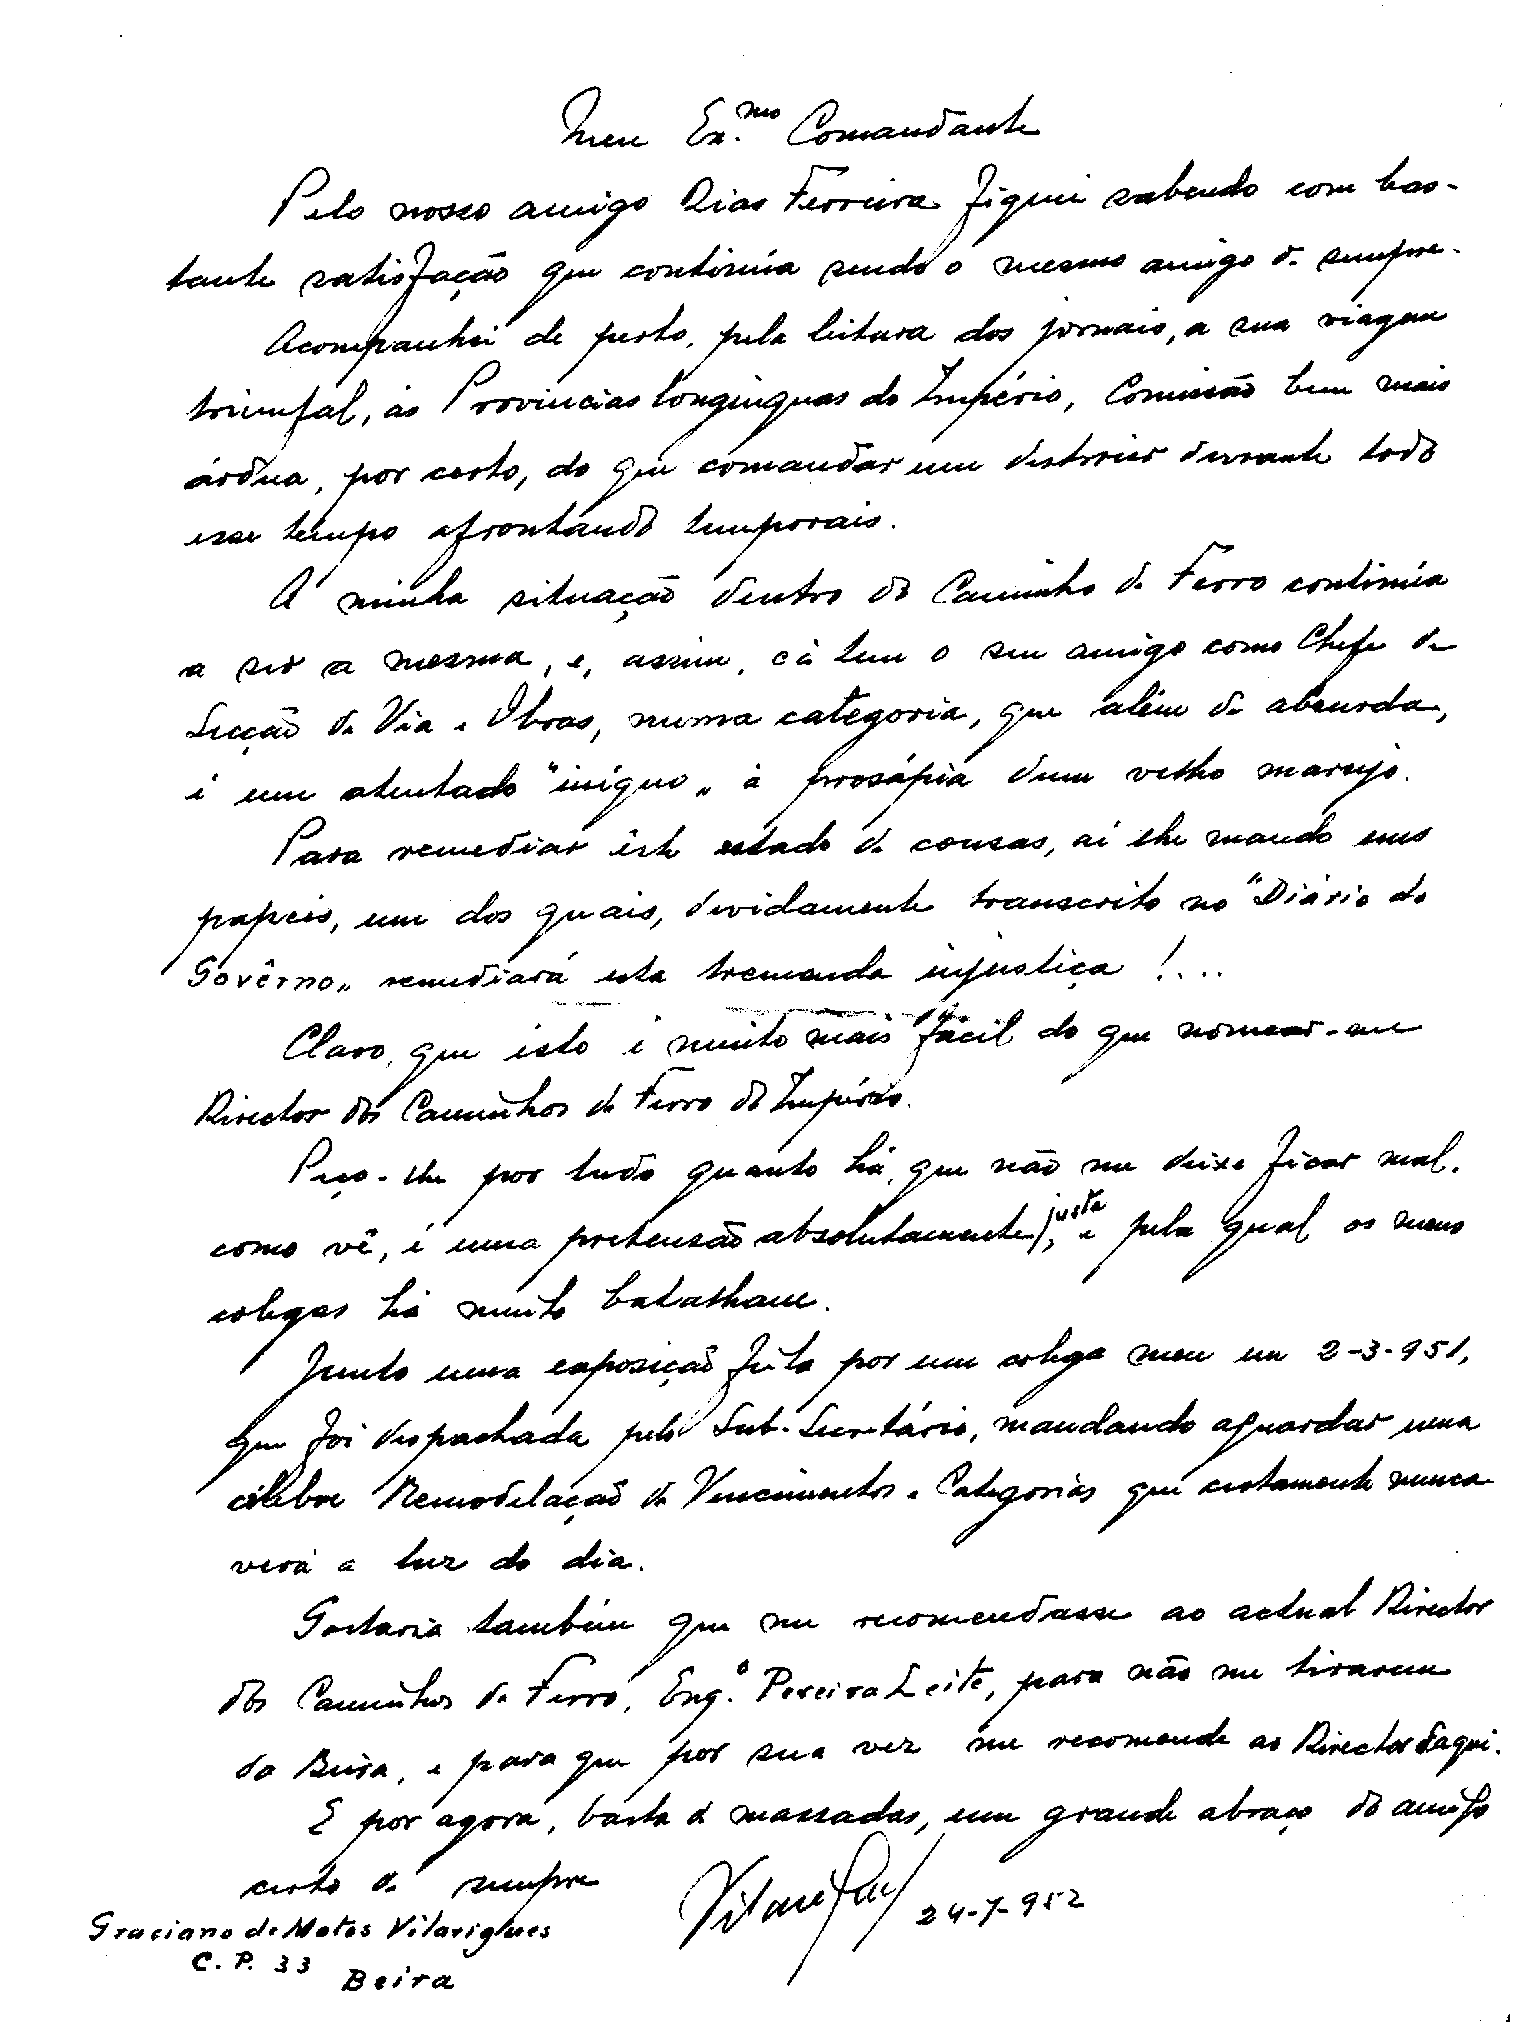 Meu Ex.mo Comandante
Pelo nosso amigo Dias Ferreira fiquei sabendo com bas-
tante satisfação que continúa sendo o mesmo amigo de sempre.
Acompanhei de perto, pela leitura dos jornais, a sua viagem
triunfal, às Provincias longinquas do Império, Comissão bem mais
árdua, por certo, do que comandar um destroier durante todo
esse tempo afrontando temporais.
A minha situação dentro do Caminho de Ferro continúa
a ser a mesma, e, assim, cá tem o seu amigo como Chefe de
Secção de Via e Obras, numa categoria, que além de absurda,
é um atentado "iníquo" à prosápia dum velho marujo.
Para remediar êste estado de cousas, aí lhe mando uns
papeis, um dos quais, devidamente transcrito no "Diário do
Govêrno" remediará esta tremenda injustiça !...
Claro, que isto é muito mais fácil do que nomear-me
Director dos Caminhos de Ferro do Império.
Peço-lhe por tudo quanto há, que não me deixe ficar mal.
como vê, é uma pretensão absolutamente justa, e pela qual os meus
colegas há muito batalham.
Junto uma exposição feita por um colega meu em 2-3-951,
que foi despachada pelo Sub-Secretário, mandando aguardar uma
célebre Remodelação de Vencimentos e Categorias que certamente nunca
verá a luz do dia.
Gostaria também que me recomendasse ao actual Director
dos Caminhos de Ferro, Eng.º Pereira Leite, para não me tirarem
da Beira, e para que por sua vez me recomende ao Director daqui.
E por agora, basta de massadas, um grande abraço do amigo
certo de sempre
Vilarigues
24-7-952
Graciano de Matos Vilarigues
C. P. 33
Beira